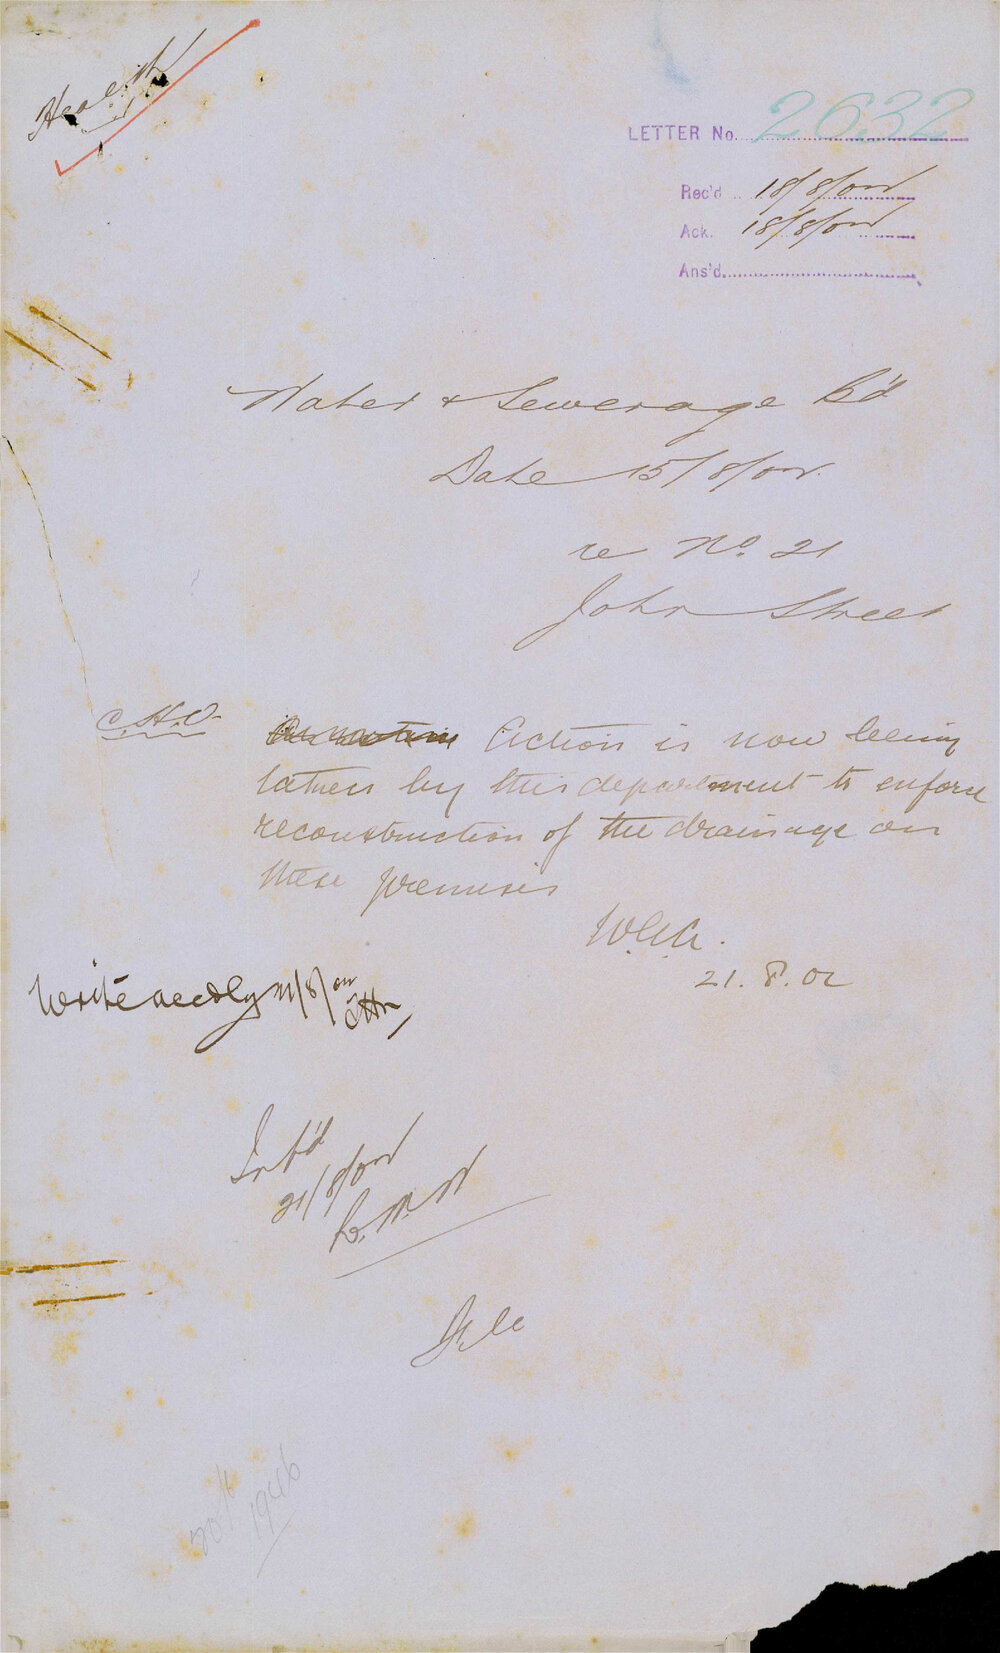 Health
LETTER No. 2632
Rec'd 18/8/02
Ack. 18/8/02
Ans'd
Water & Sewerage B'd
Date 15/8/02
re No. 21
John Street
C.H.O.
Action is now being
taken by this department to enforce
reconstruction of the drainage on
these premises
W.G.A.
21.8.02
Write accdly 21/8/02
Int'd
21/8/02
File
1946